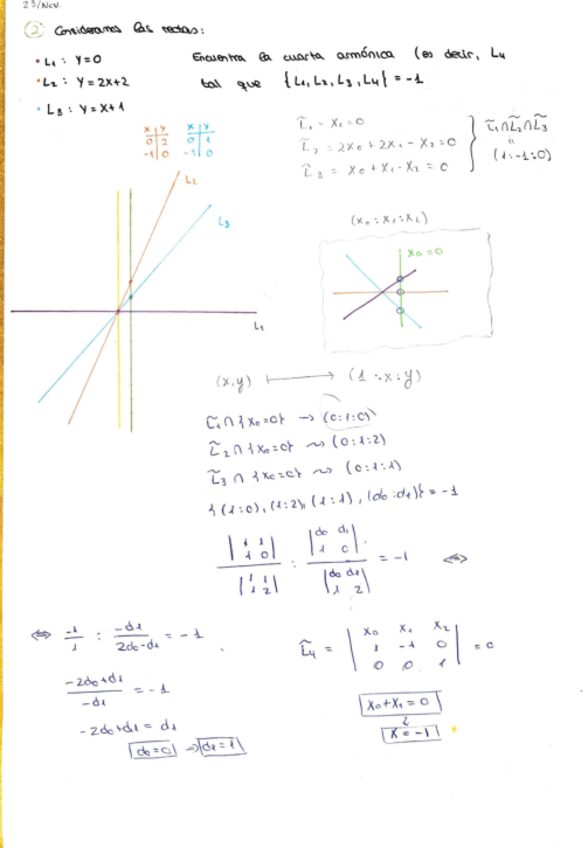 23/Nov.
② Consideramos las rectas:
• L₁ : Y=0
• L₂ : Y=2x+2
• L₃ : Y=x+1
Encuentra la cuarta armónica (es decir, L₄
tal que {L₁, L₂, L₃, L₄} = -1
x y
0 2
-1 0
x y
0 1
-1 0
L̃₁ = X₂=0
L̃₂ = 2x₀+2x₁-x₂=0
L̃₃ = x₀+x₁-x₂=0
L̃₁∩L̃₂∩L̃₃
"
(1:-1:0)
L₂
L₃
L₁
(x₀:x₁:x₂)
x₀=0
(x,y) ⟼ (1:x:y)
L̃₁∩{x₀=0} → (0:1:0)
L̃₂∩{x₀=0} ⇝ (0:1:2)
L̃₃∩{x₀=0} ⇝ (0:1:1)
{(1:0),(1:2),(1:1),(d₀:d₁)} = -1
|1 1|
|1 0|
|1 1|
|1 2|
:
|d₀ d₁|
|1 0|
|d₀ d₁|
|1 2|
= -1 ⇔
⇔ -1/1 : -d₁/2d₀-d₁ = -1
-2d₀+d₁/-d₁ = -1
-2d₀+d₁ = d₁
d₀=0 ⇒ d₁=1
L̃₄ =
| x₀ x₁ x₂ |
| 1 -1 0 |
| 0 0 1 |
= 0
x₀+x₁=0
x=-1